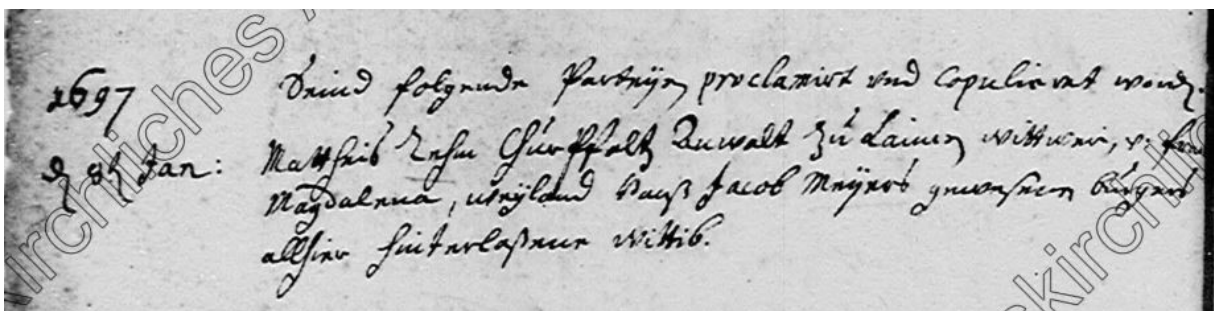 1697 Seind folgende Partheyen proclamirt und Copuliret word.
d 8t Jan: Mattheis Rehm Churpfaltz Anwalt zu Laimen wittwer, v. Frau
Magdalena, weyland Hanß Jacob Meyers gewesenen burgers
allhier hinterlaßene wittib.